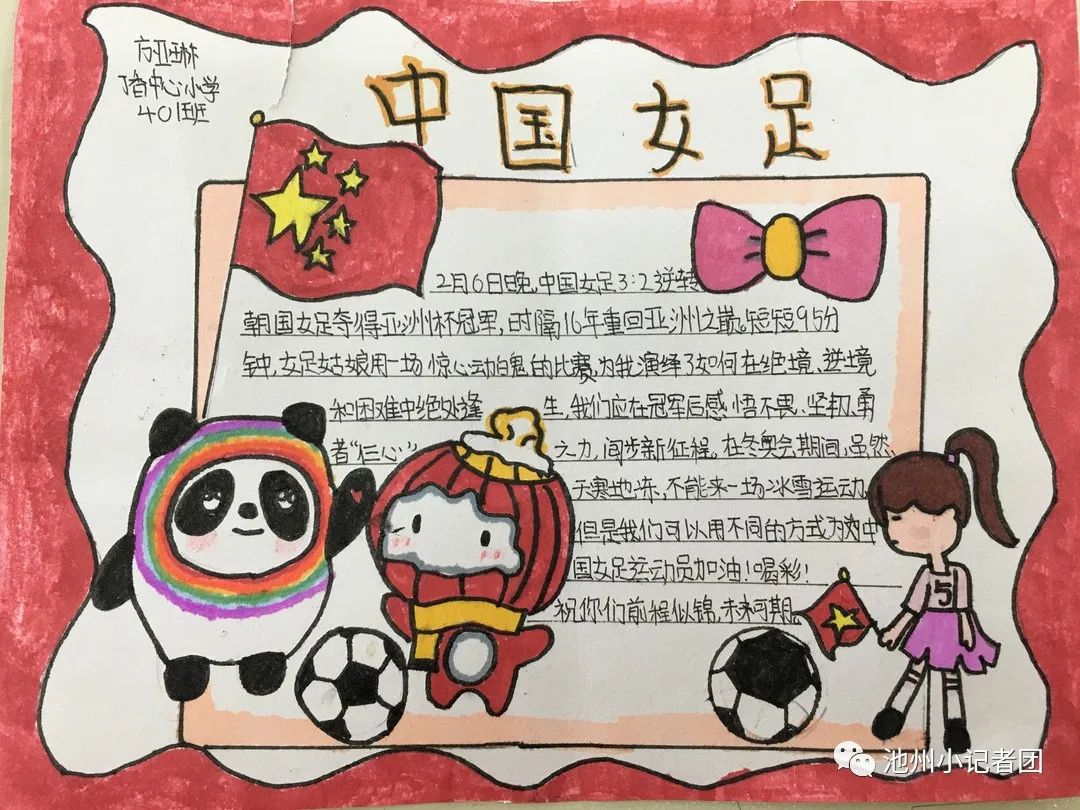 方亚琳
丁香中心小学
401班
中国女足
2月6日晚,中国女足3:2逆转
韩国女足夺得亚洲杯冠军,时隔16年重回亚洲之巅。短短95分
钟,女足姑娘用一场惊心动魄的比赛,为我演绎了如何在绝境、逆境
和困难中绝处逢 生,我们应在冠军后感悟不畏、坚韧、勇
者“仨心” 之力,阔步新征程。在冬奥会期间,虽然
天寒地冻,不能来一场冰雪运动,
但是我们可以用不同的方式为中
国女足运动员加油!喝彩!
祝你们前程似锦,未来可期。
5
池州小记者团